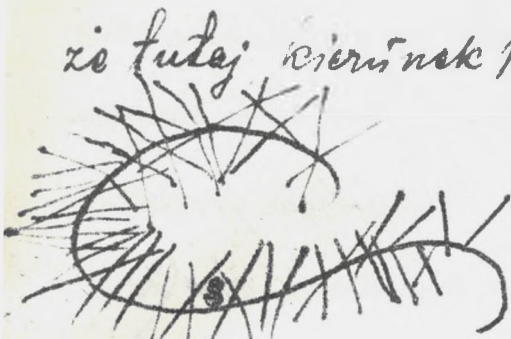 że tutaj kierunek